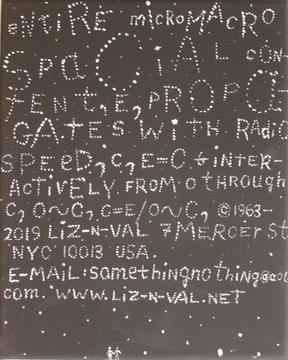 ENTIRE micROMACRO
SPaCiAL CON-
TENT, E, PROPa-
GATES WiTH RADiO
SPEED, C, E=C & iNTER-
ACTiVELY FROM 0 THROUGH
C, O~C, C=E/O~C, ©1963-
2019 LiZ-N-VAL 7 MERCER St
NYC 10013 USA.
E-MAiL:somethingnothing@aol
com. WWW.LiZ-N-VAL.NET